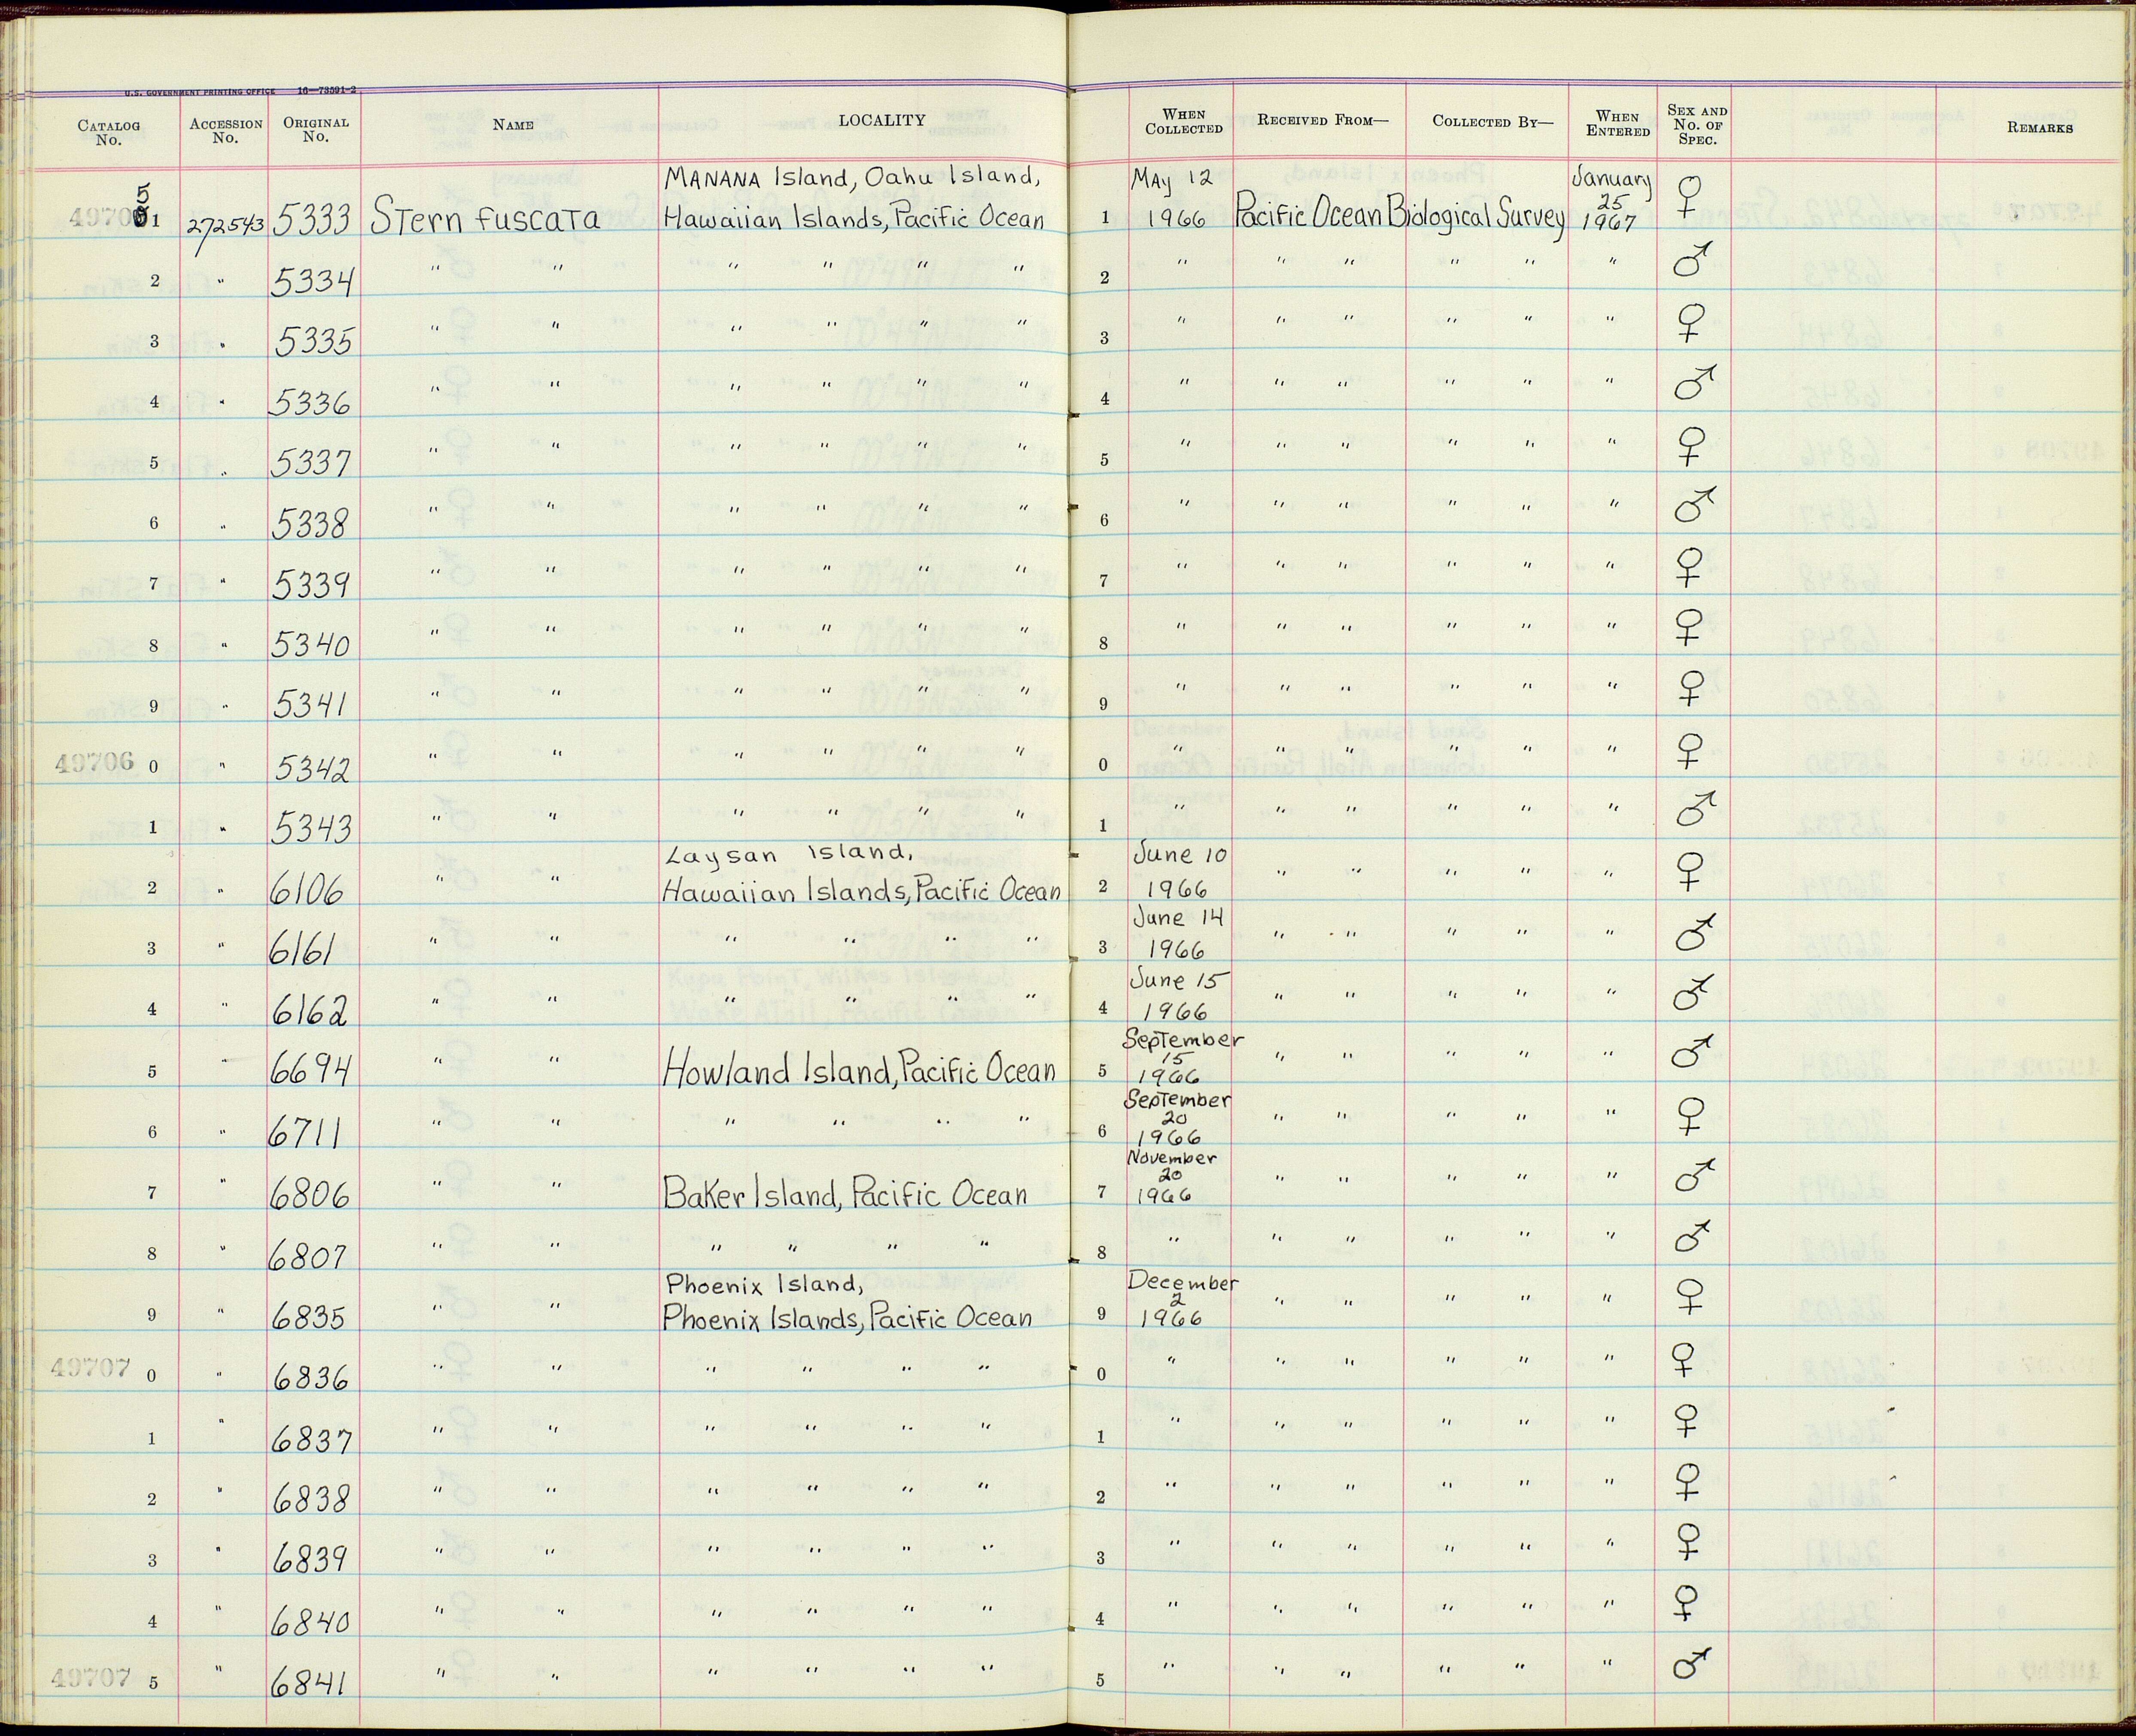 U.S. GOVERNMENT PRINTING OFFICE 16—73591-2
CATALOG No. ACCESSION No. ORIGINAL No. NAME LOCALITY WHEN COLLECTED RECEIVED FROM— COLLECTED BY— WHEN ENTERED SEX AND No. OF SPEC. REMARKS
MANANA Island, Oahu Island, May 12 January
5 25
1 272543 5333 Stern fuscata Hawaiian Islands, Pacific Ocean 1 1966 Pacific Ocean Biological Survey 1967 ♀
2 " 5334 " " " " " " 2 " " " " " " ♂
3 " 5335 " " " " " " 3 " " " " " " ♀
4 " 5336 " " " " " " 4 " " " " " " ♂
5 " 5337 " " " " " " 5 " " " " " " ♀
6 " 5338 " " " " " " 6 " " " " " " ♂
7 " 5339 " " " " " " 7 " " " " " " ♀
8 " 5340 " " " " " " 8 " " " " " " ♀
9 " 5341 " " " " " " 9 " " " " " " ♀
49706 0 " 5342 " " " " " " 0 " " " " " " ♀
1 " 5343 " " " " " " 1 " " " " " " ♂
Laysan Island, June 10
2 " 6106 " " Hawaiian Islands, Pacific Ocean 2 1966 " " " " " ♀
June 14
3 " 6161 " " " " " " 3 1966 " " " " " ♂
June 15
4 " 6162 " " " " " " 4 1966 " " " " " ♂
September
15
5 " 6694 " " Howland Island, Pacific Ocean 5 1966 " " " " " ♂
September
20
6 " 6711 " " " " " " 6 1966 " " " " " ♀
November
20
7 " 6806 " " Baker Island, Pacific Ocean 7 1966 " " " " " ♂
8 " 6807 " " " " " " 8 " " " " " " ♂
Phoenix Island, December
2
9 " 6835 " " Phoenix Islands, Pacific Ocean 9 1966 " " " " " ♀
49707 0 " 6836 " " " " " " 0 " " " " " " ♀
1 " 6837 " " " " " " 1 " " " " " " ♀
2 " 6838 " " " " " " 2 " " " " " " ♀
3 " 6839 " " " " " " 3 " " " " " " ♀
4 " 6840 " " " " " " 4 " " " " " " ♀
49707 5 " 6841 " " " " " " 5 " " " " " " ♂